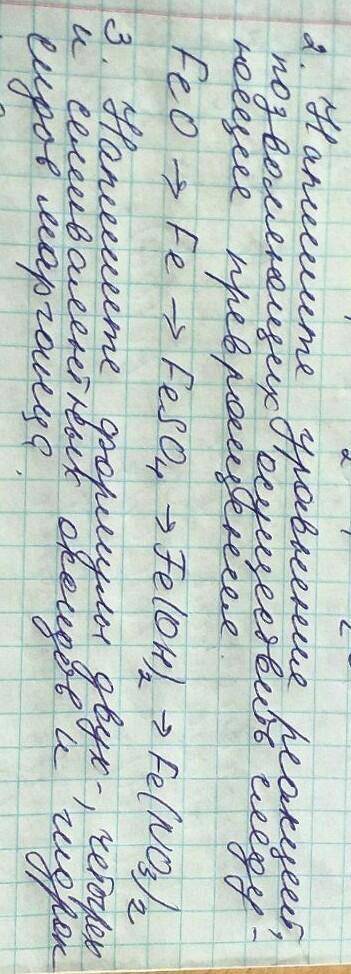 2. Напишите уравнения реакций,
позволяющих осуществить следу-
ющие превращения.
FeO → Fe → FeSO₄ → Fe(OH)₂ → Fe(NO₃)₂
3. Напишите формулы двух-, четырех
и семивалентных оксидов и гидрок
сидов марганца.